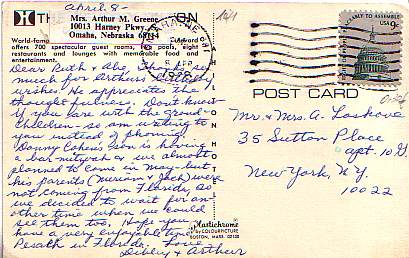 April 8 -
THE
ON
Mrs. Arthur M. Greene
10013 Harney Pkwy
Omaha, Nebraska 68114
World-famo
offers 700 spectacular guest rooms, pools, eight
restaurants and lounges with memorable food and
entertainment.
Dear Ruth + Abe, Thank you so
much for Arthur's birthday
wishes. He appreciates the
thoughtfulness. Don't know
if you are with the grand-
children so am writing to
you instead of phoning.
Danny Cohen's son is having
a bar mitzvah + we almost
planned to come in May - but
his parents (Miriam + Jack) were
not coming from Florida, so
we decided to wait for an-
other time when we could
see them too. Hope you
have a very enjoyable time
Pesach in Florida. Love,
Libby + Arthur
Plastichrome
BY COLOURPICTURE
BOSTON, MASS. 02130
USA 9c
POST CARD
Mr. + Mrs. A. Laskove
35 Sutton Place
apt. 10 G
New York, N.Y.
10022